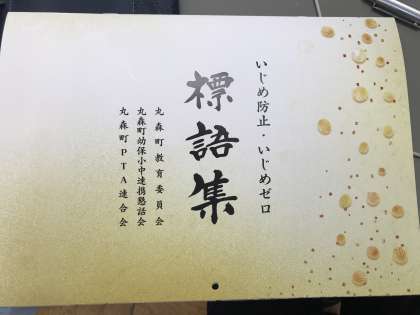 いじめ防止・いじめゼロ
標語集
丸森町教育委員会
丸森町幼保小中連携懇話会
丸森町PTA連合会